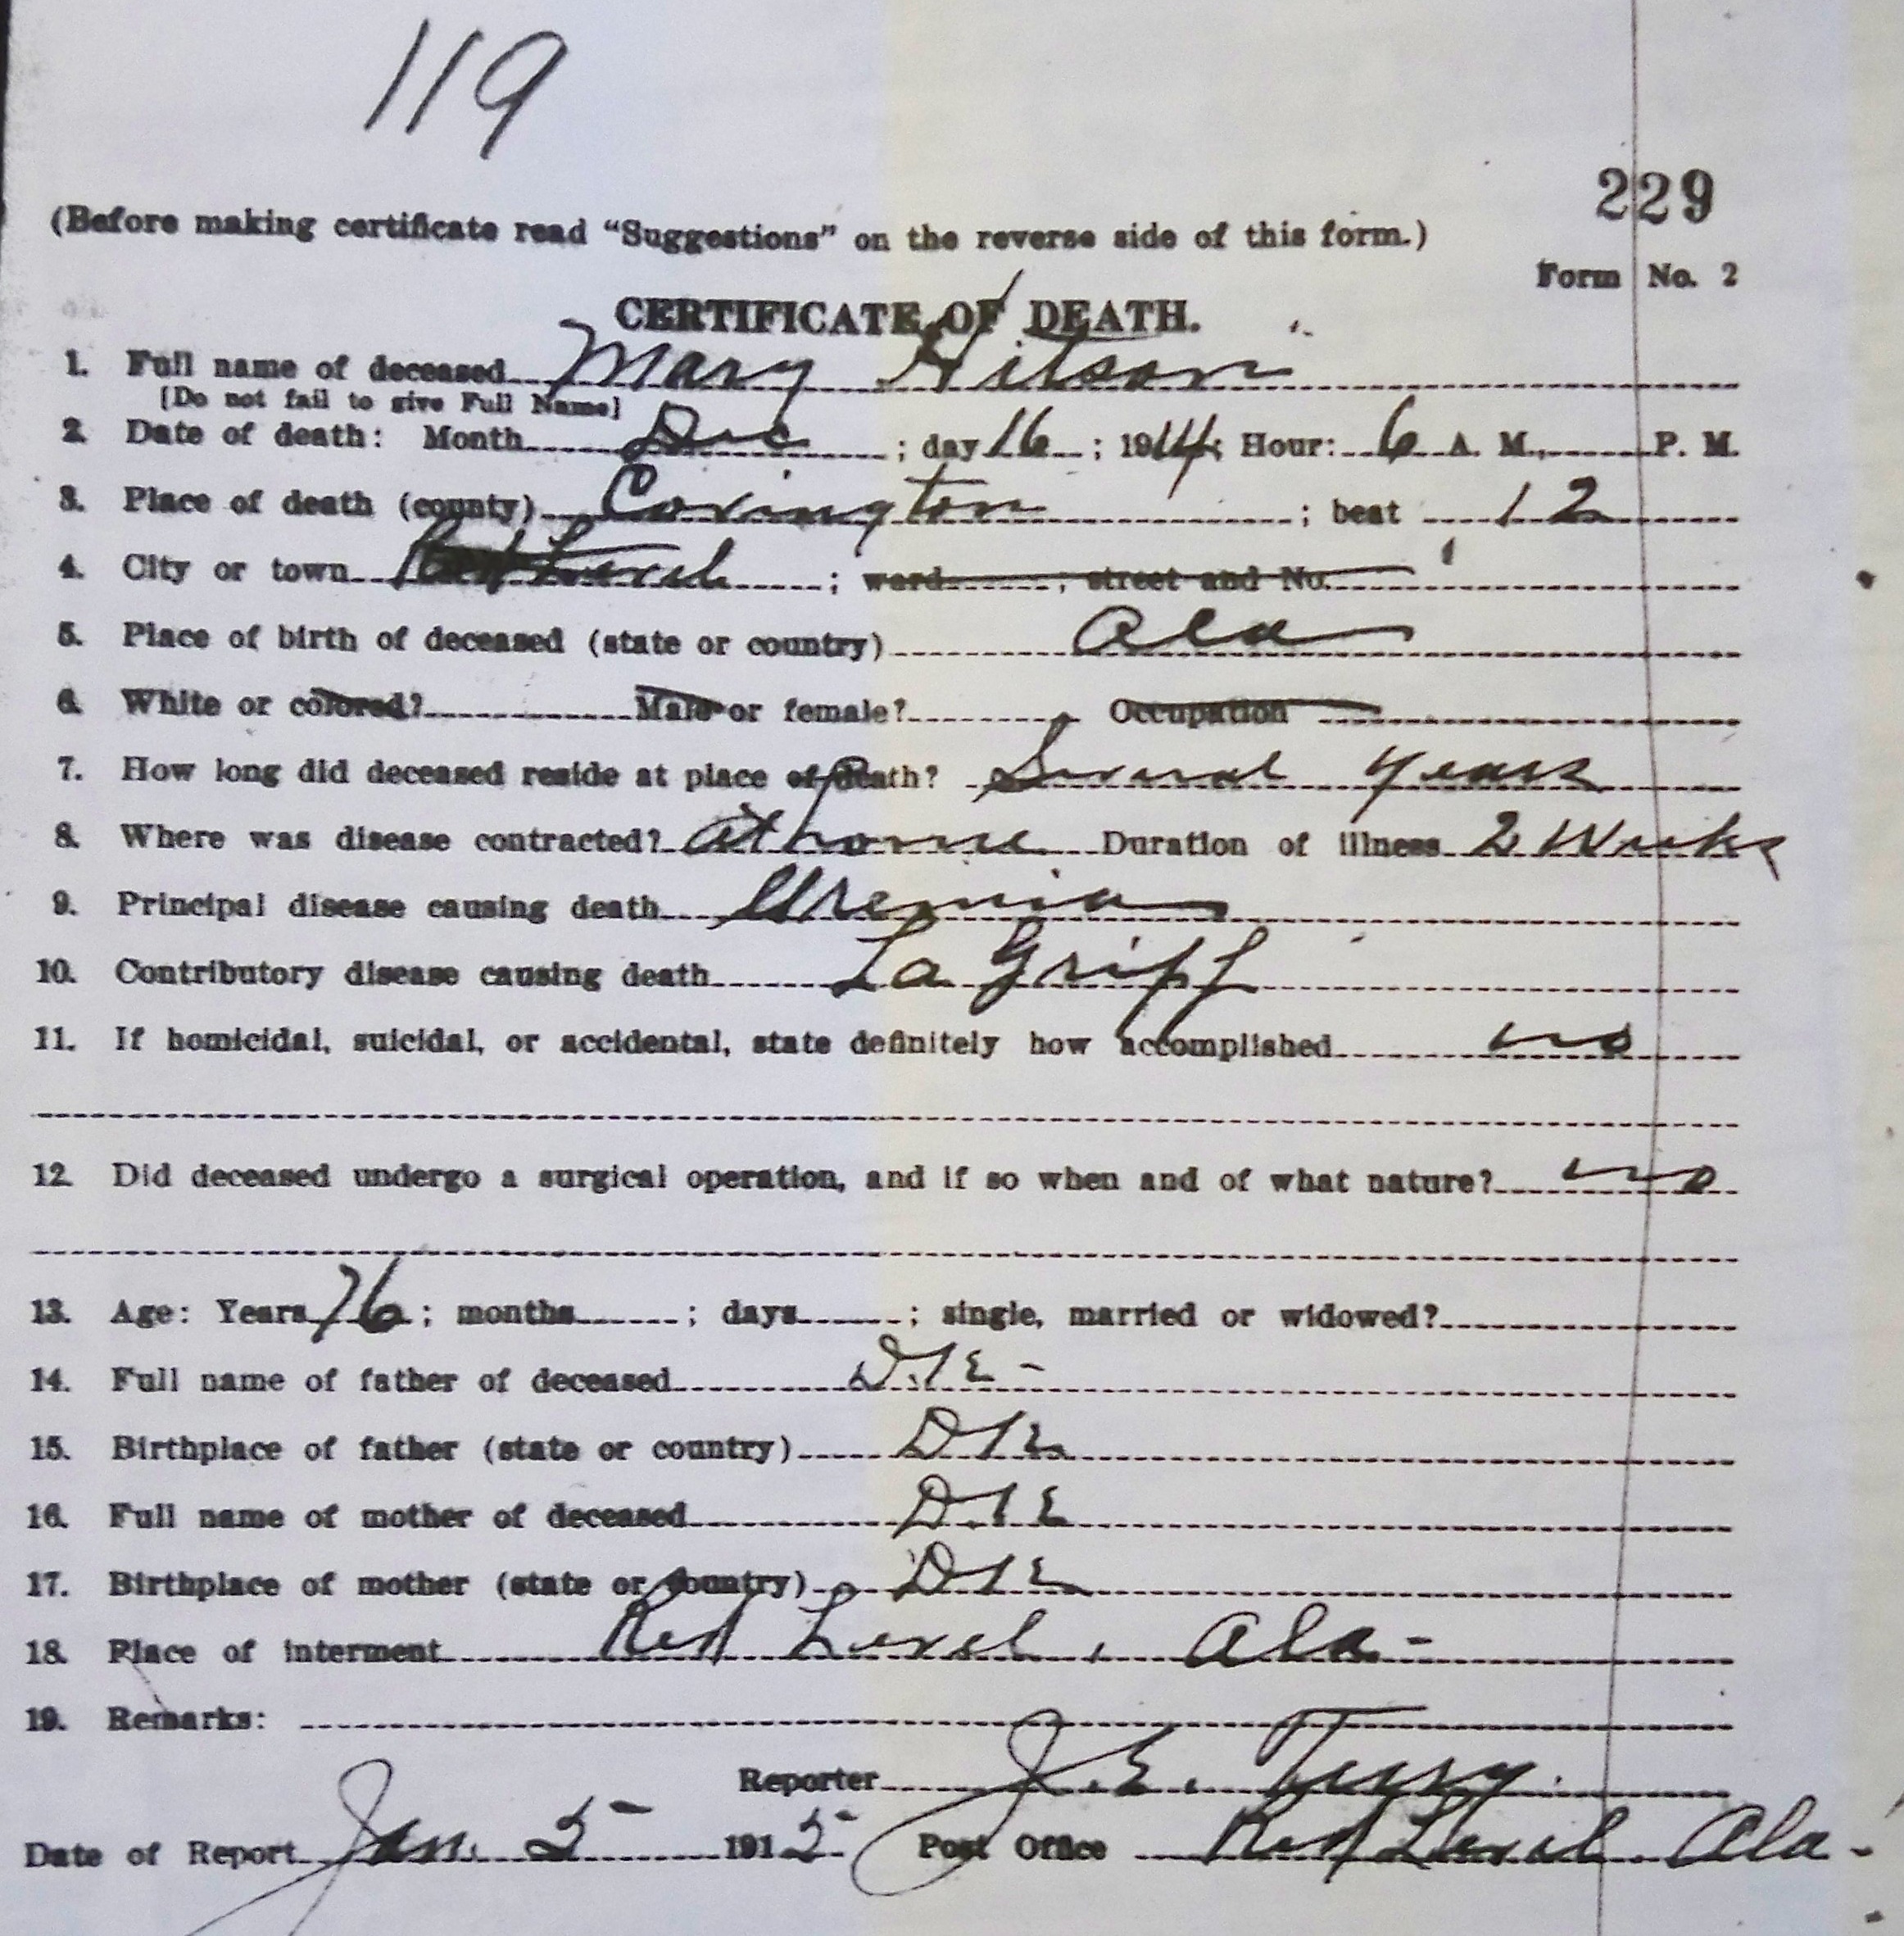 119
229
(Before making certificate read “Suggestions” on the reverse side of this form.)
Form No. 2
CERTIFICATE OF DEATH.
1. Full name of deceased Mary Hilson
[Do not fail to give Full Name]
2. Date of death: Month Dec ; day 16 ; 1914; Hour: 6 A. M., P. M.
3. Place of death (county) Covington ; beat 12
4. City or town Red Level ; ward ; street and No.
5. Place of birth of deceased (state or country) Ala
6. White or colored? Male or female? Occupation
7. How long did deceased reside at place of death? Several years
8. Where was disease contracted? At home Duration of illness 2 Weeks
9. Principal disease causing death Uremia
10. Contributory disease causing death La Gripp
11. If homicidal, suicidal, or accidental, state definitely how accomplished no
12. Did deceased undergo a surgical operation, and if so when and of what nature? no
13. Age: Years 76 ; months ; days ; single, married or widowed?
14. Full name of father of deceased D.K -
15. Birthplace of father (state or country) DK
16. Full name of mother of deceased D.K
17. Birthplace of mother (state or country) DK
18. Place of interment Red Level, Ala -
19. Remarks:
Reporter J. E. Terry.
Date of Report Jan. 5 - 1915 Post Office Red Level. Ala -